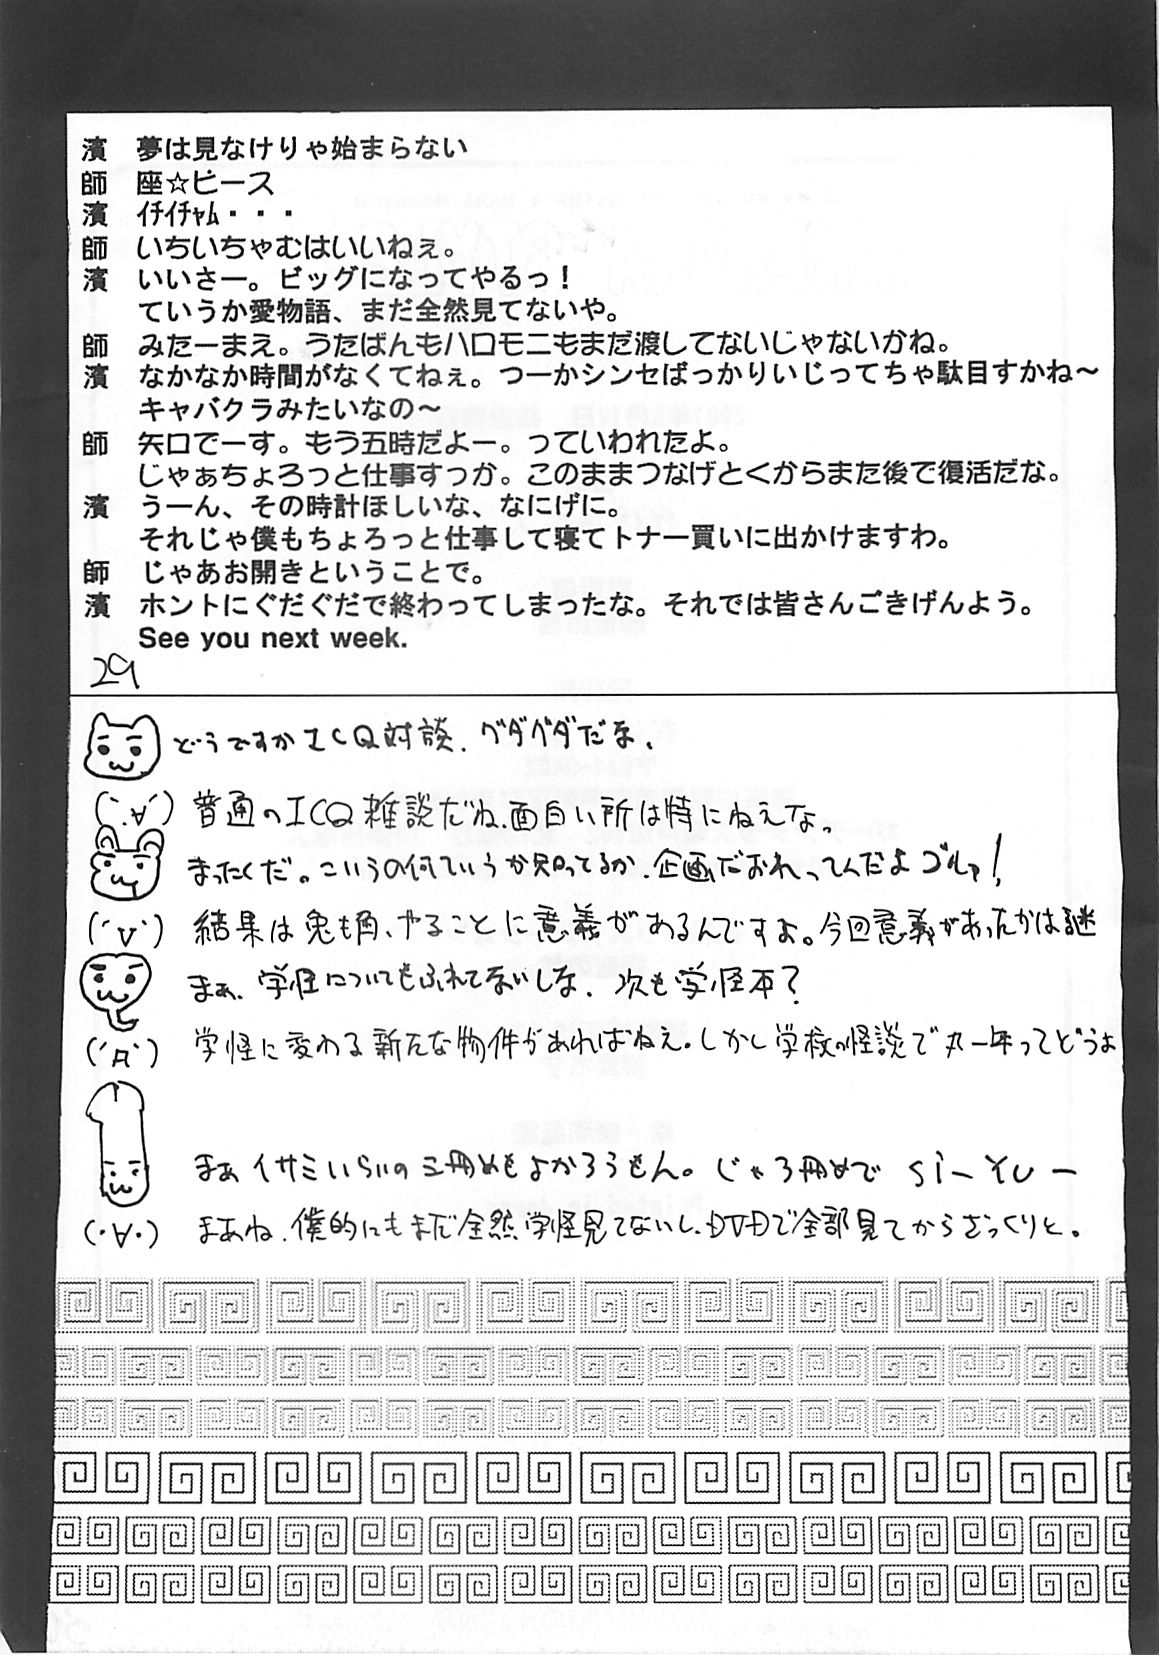 濱　夢は見なけりゃ始まらない
師　座☆ピース
濱　ｲﾁｲﾁｬﾑ・・・
師　いちいちゃむはいいねぇ。
濱　いいさー。ビッグになってやるっ！
ていうか愛物語、まだ全然見てないや。
師　みたーまえ。うたばんもハロモニもまだ渡してないじゃないかね。
濱　なかなか時間がなくてねぇ。つーかシンセばっかりいじってちゃ駄目すかね～
キャバクラみたいなの～
師　矢口でーす。もう五時だよー。っていわれたよ。
じゃぁちょろっと仕事すっか。このままつなげとくからまた後で復活だな。
濱　うーん、その時計ほしいな、なにげに。
それじゃ僕もちょろっと仕事して寝てトナー買いに出かけますわ。
師　じゃあお開きということで。
濱　ホントにぐだぐだで終わってしまったな。それでは皆さんごきげんよう。
See you next week.
29
どうですかICQ対談、グダグダだな、
(´∀`) 普通のICQ雑談だね、面白い所は特にねえな。
まったくだ。こういうの何ていうか知ってるか、企画だおれってんだよゴルァ！
(´∀`) 結果は兎も角、やることに意義があるんですよ。今回意義があったかは謎
まぁ、学怪についてもふれてないしな、次も学怪本？
(´Д`) 学怪に変わる新たな物件があればねえ。しかし学校の怪談で丸一年ってどうよ
まぁイサミいらいの三冊めもよかろうもん。じゃ3冊めで si-yu-
(・∀・) まあね、僕的にもまだ全然学怪見てないし、DVDで全部見てからざっくりと。